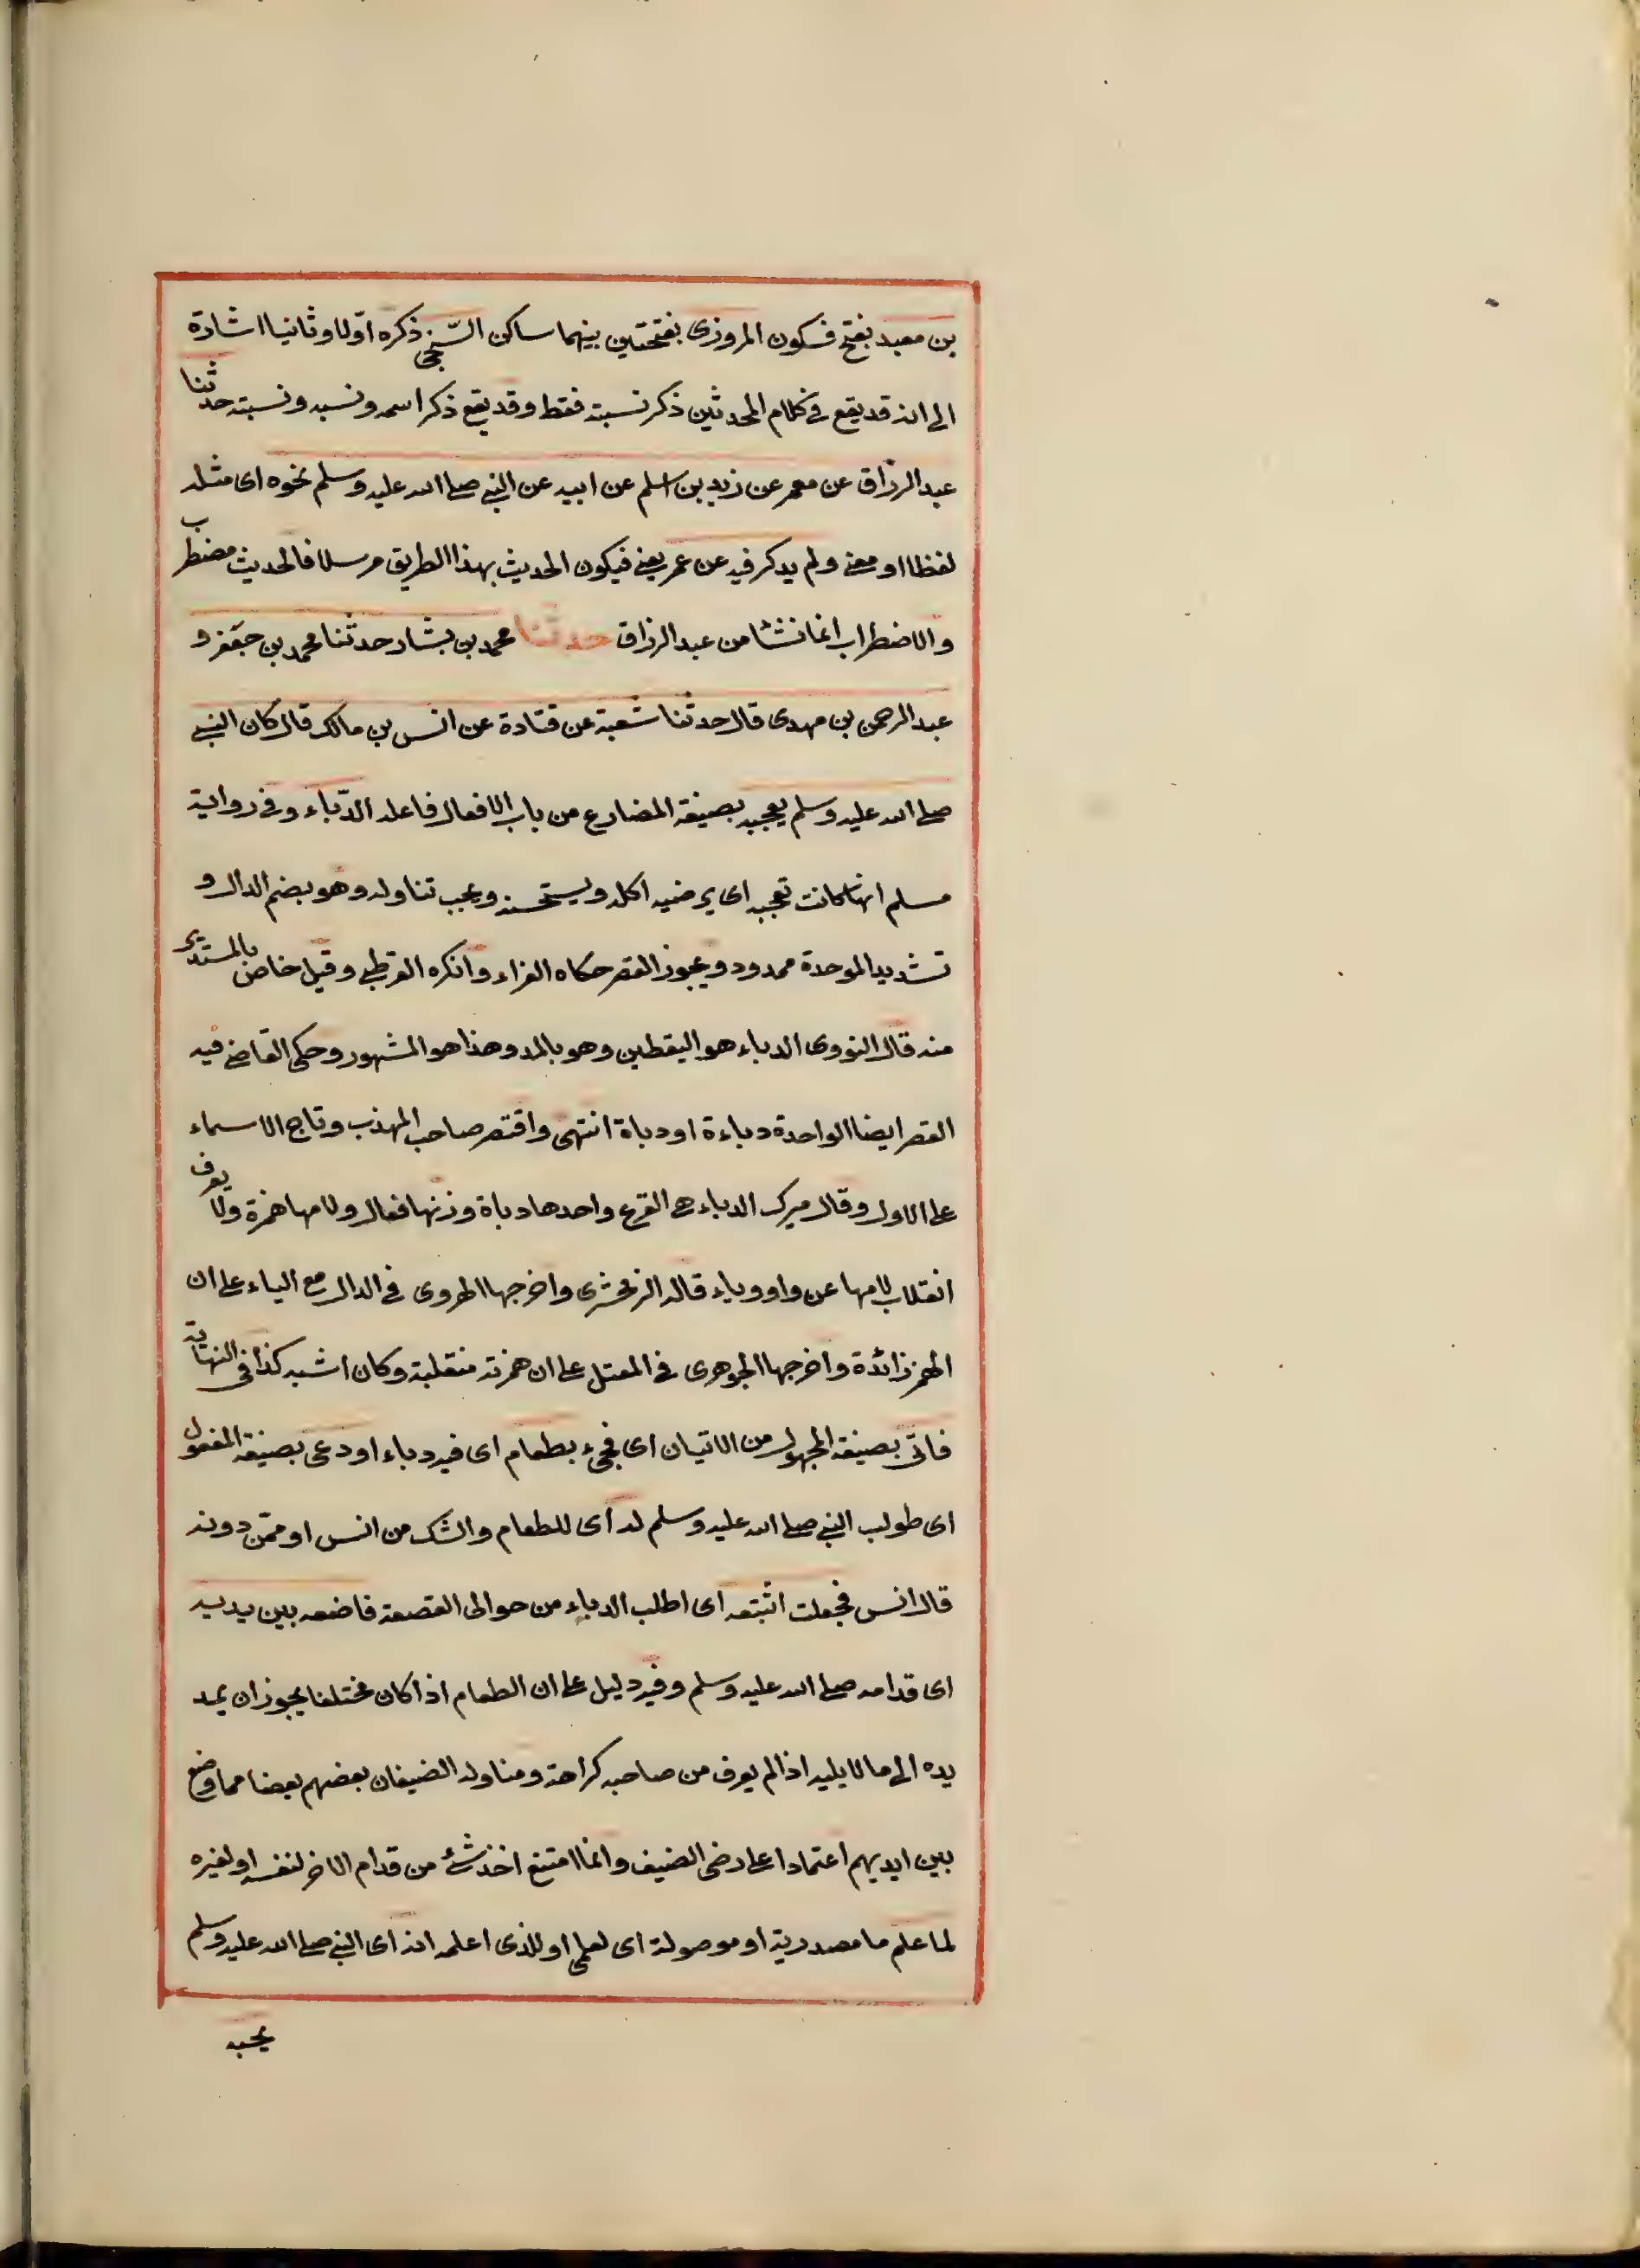 بن معبد بفتح فسكون المروزى بفتحتين بينهما ساكن السّنجى ذكره اوّلا وثانيا اشارة
الى انه قد يقع فى كلام المحدثين ذكر نسبته فقط وقد يقع ذكر اسمه ونسبه ونسبته حدثنا
عبد الرزاق عن معمر عن زيد بن اسلم عن ابيه عن النبى صلى الله عليه وسلم نحوه اى مثله
لفظا او معنى ولم يذكر فيه عن عمر يعنى فيكون الحديث بهذا الطريق مرسلا فالحديث مضطرب
والاضطراب انما نشا من عبد الرزاق حدثنا محمد بن بشار حدثنا محمد بن جعفر و
عبد الرحمن بن مهدى قال حدثنا شعبة عن قتادة عن انس بن مالك قال كان النبى
صلى الله عليه وسلم يعجبه بصيغة المضارع من باب الافعال فاعله الدّبّاء وفى رواية
مسلم انها كانت تعجبه اى يرضيه اكله ويستحسنه ويحب تناوله وهو بضم الدال و
تشديد الموحدة ممدود ويجوز القصر حكاه القزاء وانكره القرطبى وقيل خاص بالمستدير
منه قال النووى الدباء هو اليقطين وهو بالمد وهذا هو المشهور وحكى القاضى فيه
القصر ايضا الواحدة دباءة او دباة انتهى واقتصر صاحب المهذب وتاج الاسماء
على الاول وقال ميرك الدباء هى القرع واحدها دباة وزنها فعال ولامها همزة ولا يعرف
انقلاب لامها عن واو وياء قاله الزمخشرى واخرجها الهروى فى الدال مع الباء على ان
الهمز زائدة واخرجها الجوهرى فى المعتل على ان همزته منقلبة وكان اشبه كذا فى النهاية
فاتى بصيغة المجهول من الاتيان اى فجىء بطعام اى فيه دباء او دعى بصيغة المفعول
اى طولب النبى صلى الله عليه وسلم له اى للطعام والشك من انس او ممّن دونه
قال انس فجعلت اتتبعه اى اطلب الدباء من حوالى القصعة فاضعه بين يديه
اى قدامه صلى الله عليه وسلم وفيه دليل على ان الطعام اذا كان مختلفا يجوز ان يمد
يده الى ما لا يليه اذا لم يعرف من صاحبه كراهة ومناولة الضيفان بعضهم بعضا مما وضع
بين ايديهم اعتمادا على رضى الضيف وانما امتنع اخذ شئ من قدام الاخر لنفسه او لغيره
لما علم ما مصدرية او موصولة اى لعلمى او للذى اعلمه انه اى النبى صلى الله عليه وسلم
يحبه